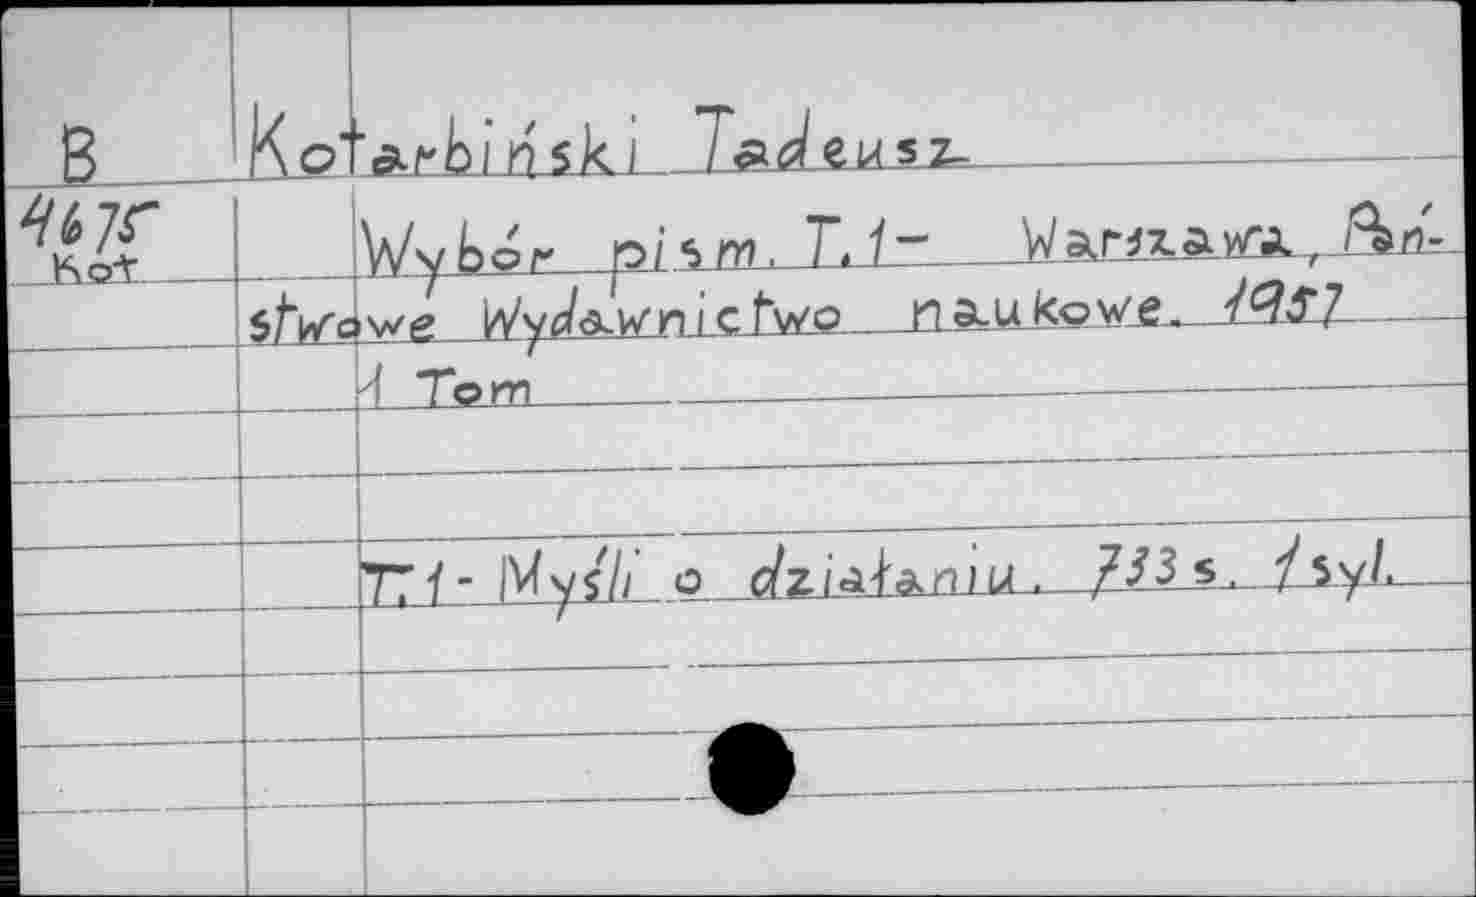 B Kotarbiński Tadeusz
4675 Wybór pism. T.1- Warszawa, Pań-
Kot stwowe Wydawnictwo naukowe. 1957
1 Tom
T.1- Myśli o działaniu. 733 s. 1 syl.